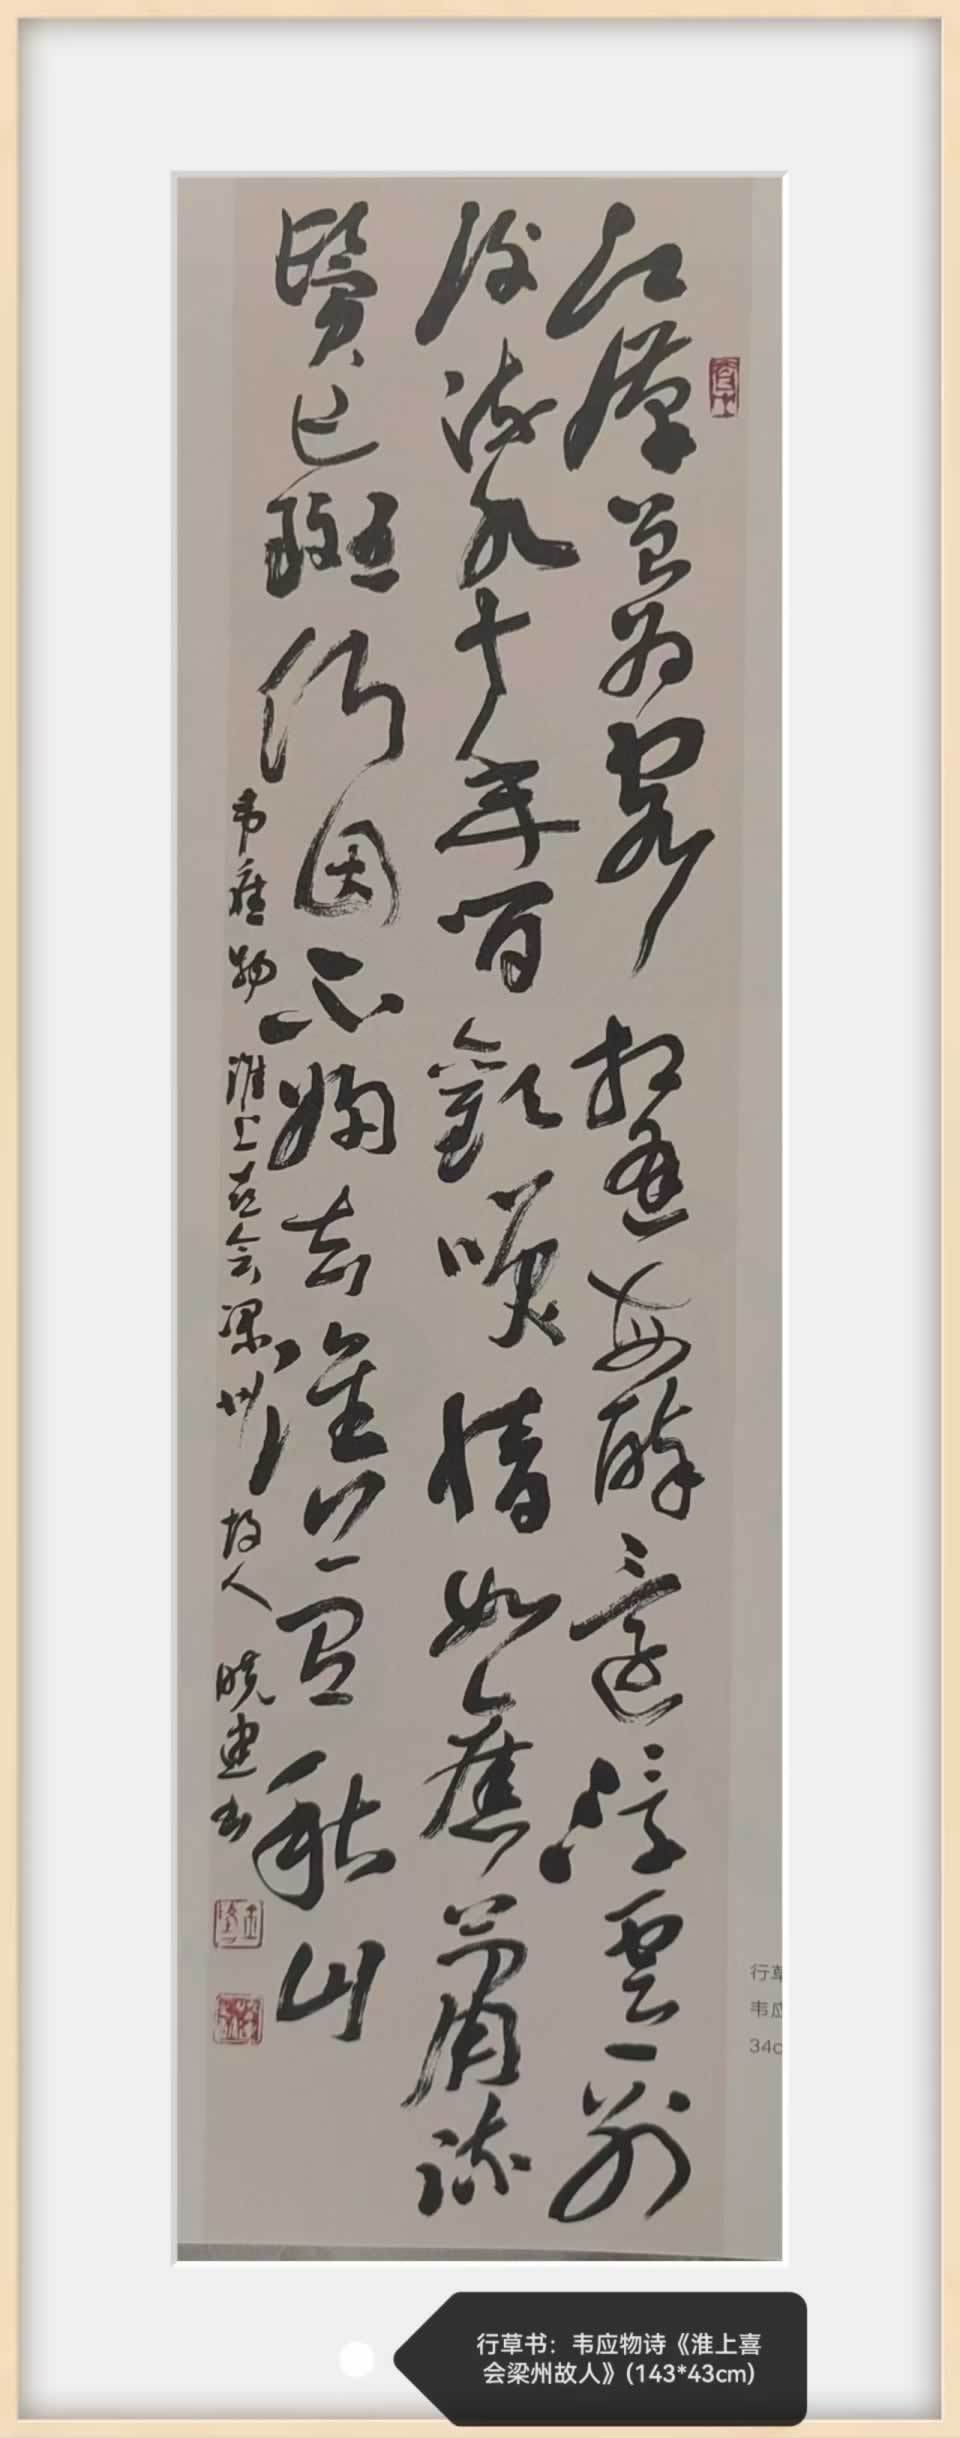 江漢曾為客相逢每醉還浮雲一別
後流水十年間歡笑情如舊蕭疏
鬢已斑何因不歸去淮上有秋山
韦應物淮上喜会梁州故人 晓建书
行草
韦应
34c
行草书：韦应物诗《淮上喜
会梁州故人》(143*43cm)